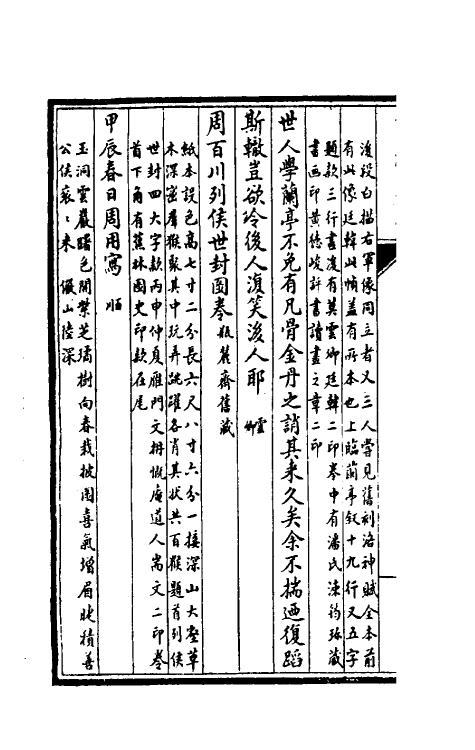 後段白描右軍像同立者又三人嘗見舊刻洛神賦全本前
有此像廷韓此幀蓋有所本也上臨蘭亭敘十九行又五字
題款三行畫後有莫雲卿廷韓二印卷中有潘氏涑鈞珎藏
書画印黃德峻評書讀畫之章二印
世人學蘭亭不免有凡骨金丹之誚其來久矣余不揣迺復蹈
斯轍豈欲令後人復笑後人耶 雲卿
周百川列侯世封圖卷 瓶麓齋舊藏
紙本設色高七寸二分長六尺八寸六分一接深山大壑草
木深密羣猴聚其中玩弄跳躍各肖其狀共百猴題首列侯
世封四大字款丙申仲夏雁門文枏慨庵道人嵩文二印卷
首下角有蕉林國史印款在尾
甲辰春日周用寫 順
玉洞雲巖曙色開紫芝瑤樹向春栽披圖喜氣增眉睫積善
公侯衮衮來 儼山陸深